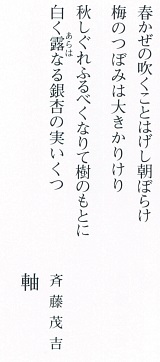 春かぜの吹くことはげし朝ぼらけ
梅のつぼみは大きかりけり
秋しぐれふるべくなりて樹のもとに
白く露なる銀杏の実いくつ
あらは
斉藤茂吉
軸